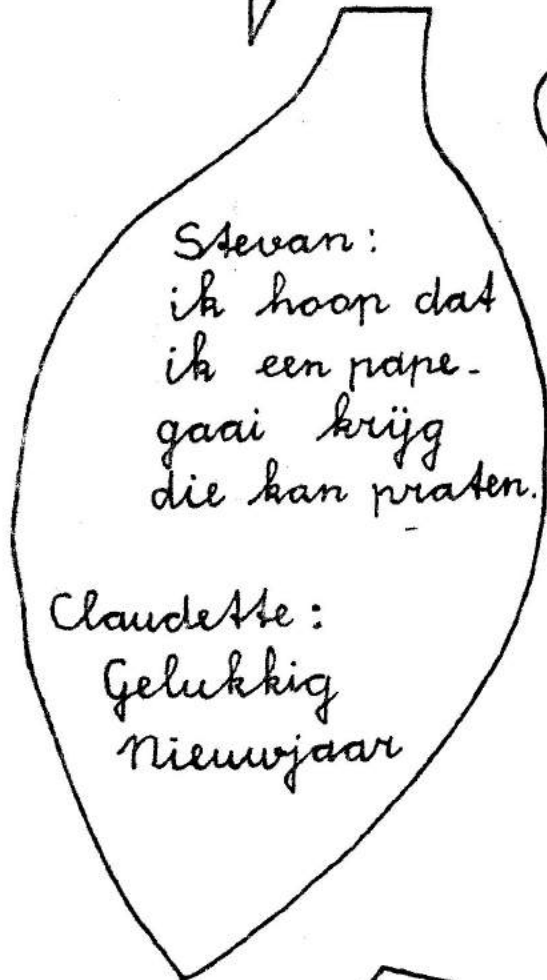 Stevan:
ik hoop dat
ik een pape-
gaai krijg
die kan praten.
Claudette:
Gelukkig
Nieuwjaar